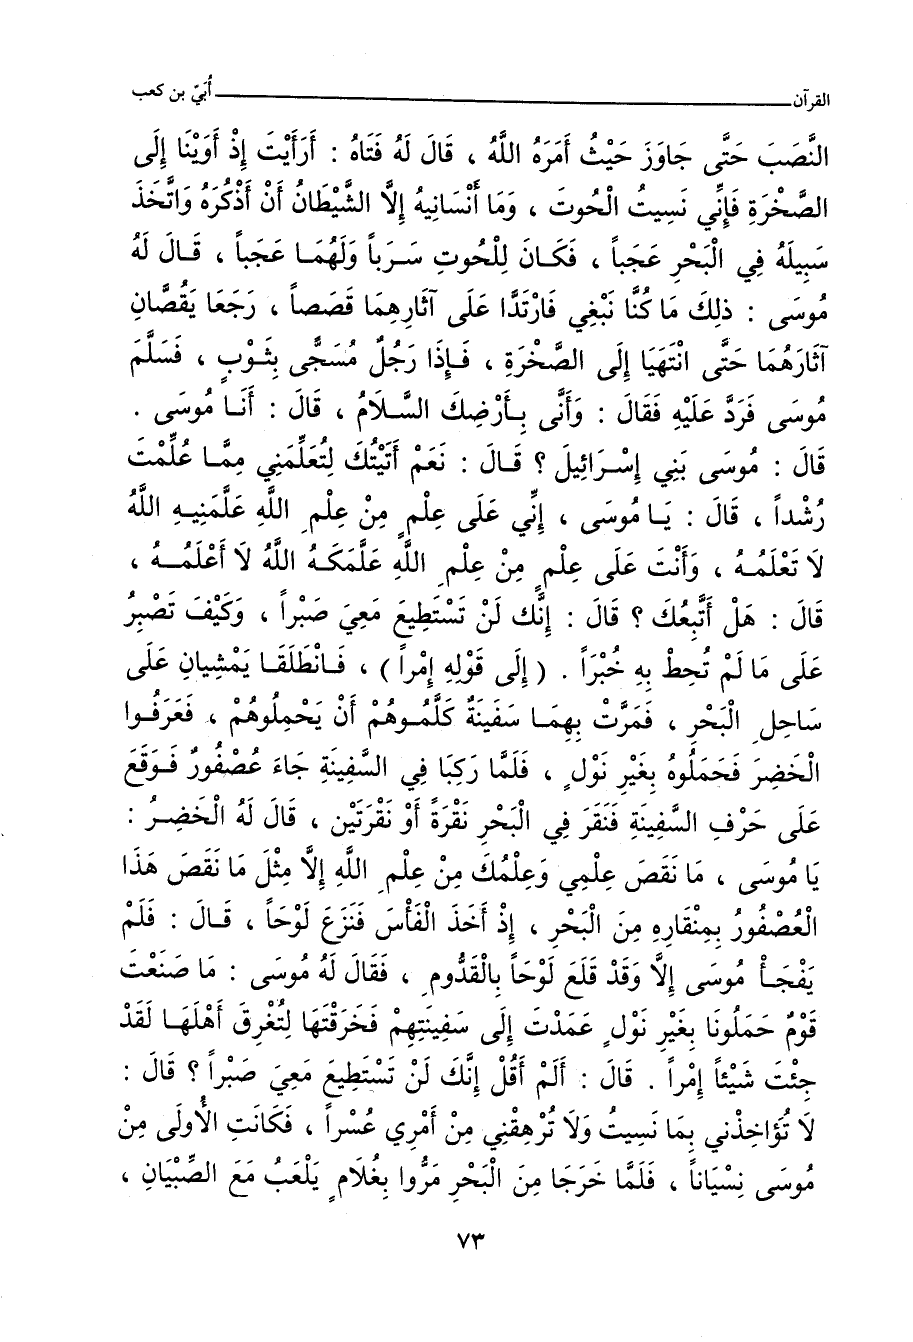 القرآن ــــــــ أُبَيّ بن كعب
النَّصَبَ حَتَّى جَاوَزَ حَيْثُ أَمَرَهُ اللَّهُ ، قَالَ لَهُ فَتَاهُ : أَرَأَيْتَ إِذْ أَوَيْنَا إِلَى
الصَّخْرَةِ فَإِنِّي نَسِيتُ الْحُوتَ ، وَمَا أَنْسَانِيهُ إِلَّا الشَّيْطَانُ أَنْ أَذْكُرَهُ وَاتَّخَذَ
سَبِيلَهُ فِي الْبَحْرِ عَجَباً ، فَكَانَ لِلْحُوتِ سَرَباً وَلَهُمَا عَجَباً ، قَالَ لَهُ
مُوسَى : ذلِكَ مَا كُنَّا نَبْغِي فَارْتَدَّا عَلَى آثَارِهِمَا قَصَصاً ، رَجَعَا يَقُصَّانِ
آثَارَهُمَا حَتَّى انْتَهَيَا إِلَى الصَّخْرَةِ ، فَإِذَا رَجُلٌ مُسَجًّى بِثَوْبٍ ، فَسَلَّمَ
مُوسَى فَرَدَّ عَلَيْهِ فَقَالَ : وَأَنَّى بِأَرْضِكَ السَّلَامُ ، قَالَ : أَنَا مُوسَى .
قَالَ : مُوسَى بَنِي إِسْرَائِيلَ ؟ قَالَ : نَعَمْ أَتَيْتُكَ لِتُعَلِّمَنِي مِمَّا عُلِّمْتَ
رُشْداً ، قَالَ : يَا مُوسَى ، إِنِّي عَلَى عِلْمٍ مِنْ عِلْمِ اللَّهِ عَلَّمَنِيهِ اللَّهُ
لَا تَعْلَمُهُ ، وَأَنْتَ عَلَى عِلْمٍ مِنْ عِلْمِ اللَّهِ عَلَّمَكَهُ اللَّهُ لَا أَعْلَمُهُ ،
قَالَ : هَلْ أَتَّبِعُكَ ؟ قَالَ : إِنَّكَ لَنْ تَسْتَطِيعَ مَعِيَ صَبْراً ، وَكَيْفَ تَصْبِرُ
عَلَى مَا لَمْ تُحِطْ بِهِ خُبْرَاً . ( إِلَى قَوْلِهِ إِمْراً ) ، فَانْطَلَقَا يَمْشِيانِ عَلَى
سَاحِلِ الْبَحْرِ ، فَمَرَّتْ بِهِمَا سَفِينَةٌ كَلَّمُوهُمْ أَنْ يَحْمِلُوهُمْ ، فَعَرَفُوا
الْخَضِرَ فَحَمَلُوهُ بِغَيْرِ نَوْلٍ ، فَلَمَّا رَكِبَا فِي السَّفِينَةِ جَاءَ عُصْفُورٌ فَوَقَعَ
عَلَى حَرْفِ السَّفِينَةِ فَنَقَرَ فِي الْبَحْرِ نَقْرَةً أَوْ نَقْرَتَيْنِ ، قَالَ لَهُ الْخَضِرُ :
يَا مُوسَى ، مَا نَقَصَ عِلْمِي وَعِلْمُكَ مِنْ عِلْمِ اللَّهِ إِلَّا مِثْلَ مَا نَقَصَ هَذَا
الْعُصْفُورُ بِمِنْقَارِهِ مِنَ الْبَحْرِ ، إِذْ أَخَذَ الْفَأْسَ فَنَزَعَ لَوْحَاً ، قَالَ : فَلَمْ
يَفْجَأْ مُوسَى إِلَّا وَقَدْ قَلَعَ لَوْحَاً بِالْقَدُّومِ ، فَقَالَ لَهُ مُوسَى : مَا صَنَعْتَ
قَوْمٌ حَمَلُونَا بِغَيْرِ نَوْلٍ عَمَدْتَ إِلَى سَفِينَتِهِمْ فَخَرَقْتَهَا لِتُغْرِقَ أَهْلَهَا لَقَدْ
جِئْتَ شَيْئاً إِمْراً . قَالَ : أَلَمْ أَقُلْ إِنَّكَ لَنْ تَسْتَطِيعَ مَعِيَ صَبْراً ؟ قَالَ :
لَا تُؤَاخِذْنِي بِمَا نَسِيتُ وَلَا تُرْهِقْنِي مِنْ أَمْرِي عُسْراً ، فَكَانَتِ الْأُولَى مِنْ
مُوسَى نِسْيَاناً ، فَلَمَّا خَرَجَا مِنَ الْبَحْرِ مَرُّوا بِغُلَامٍ يَلْعَبُ مَعَ الصِّبْيَانِ ،
٧٣